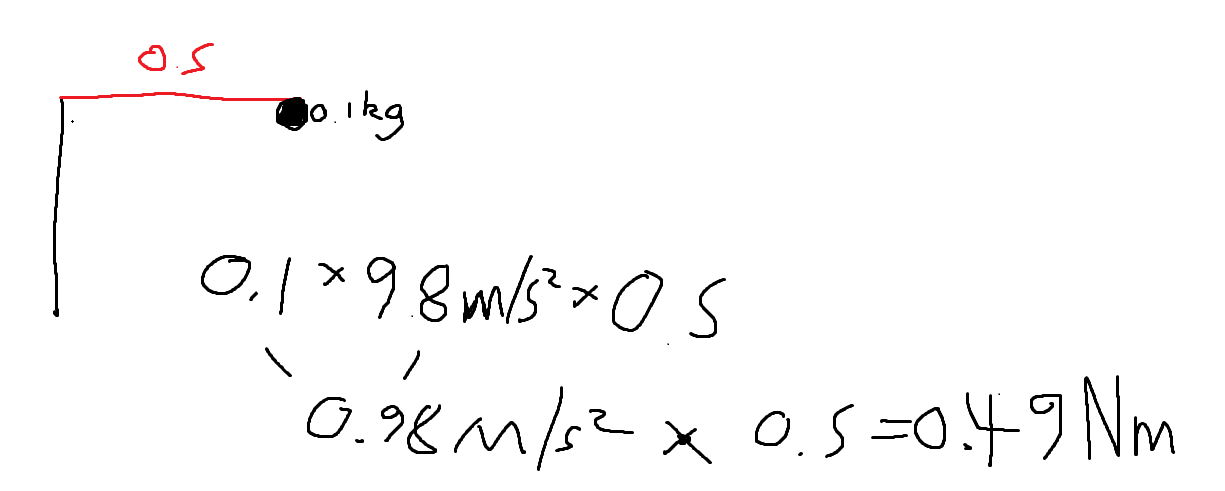 0.5
0.1kg
0.1 × 9.8 m/s² × 0.5
0.98 m/s² × 0.5 = 0.49 Nm